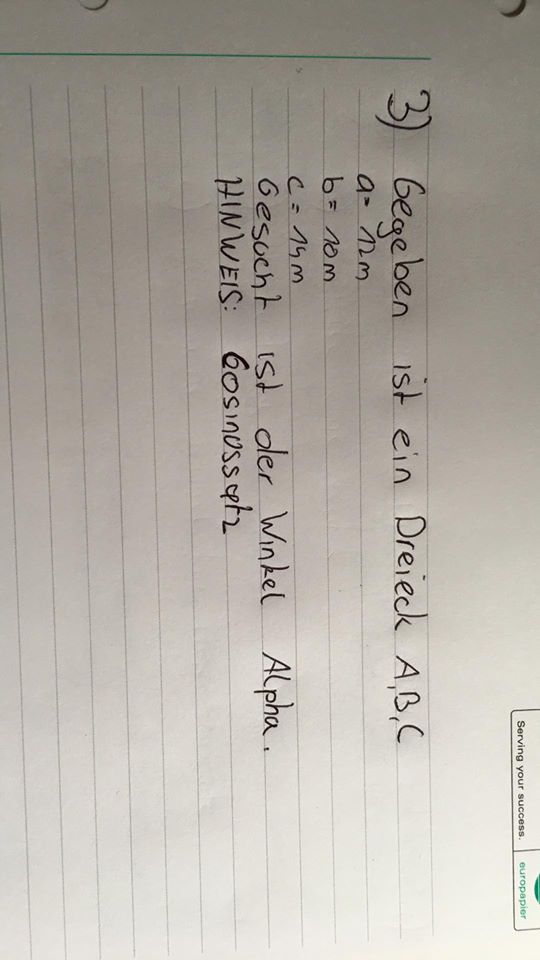 3) Gegeben ist ein Dreieck A,B,C
a= 12m
b= 10m
c= 14m
Gesucht ist der Winkel Alpha.
HINWEIS: Cosinussatz
Serving your success.
europapier